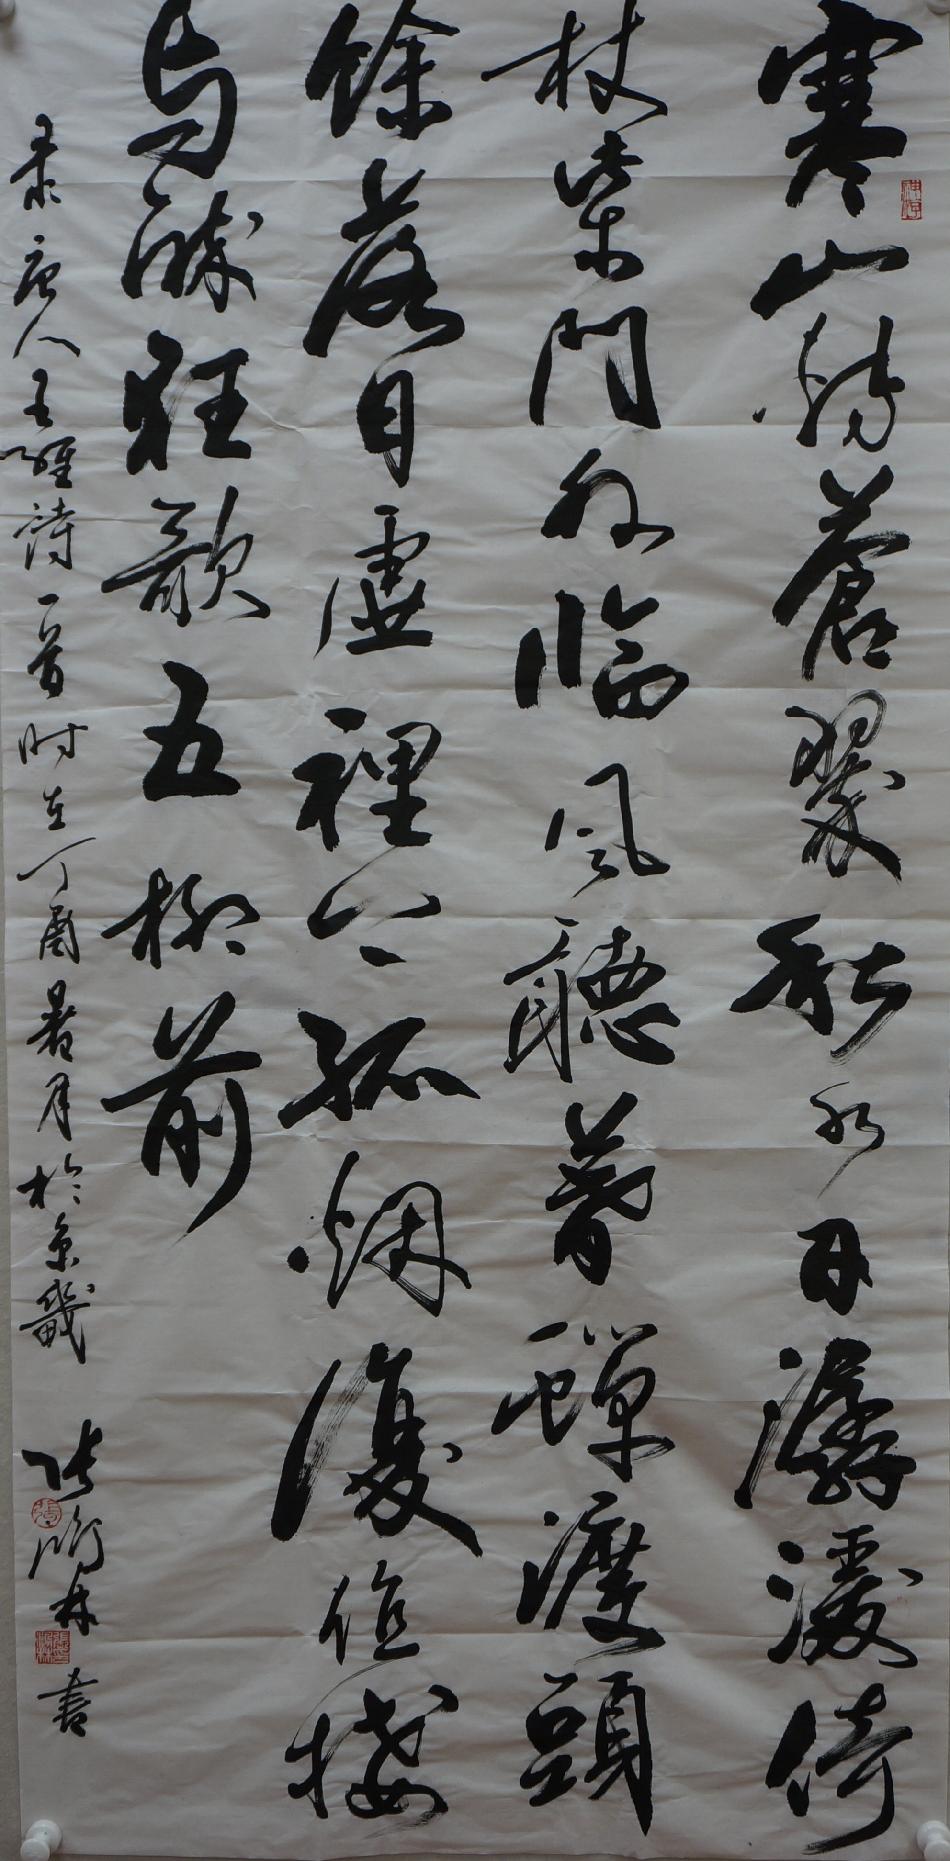 寒山轉蒼翠秋水日潺湲倚
杖柴門外臨風聽暮蟬渡頭
餘落日虛裡上孤烟復值接
与醉狂歌五柳前
录唐人王維詩一首时在丁酉暑月於京畿 张林書